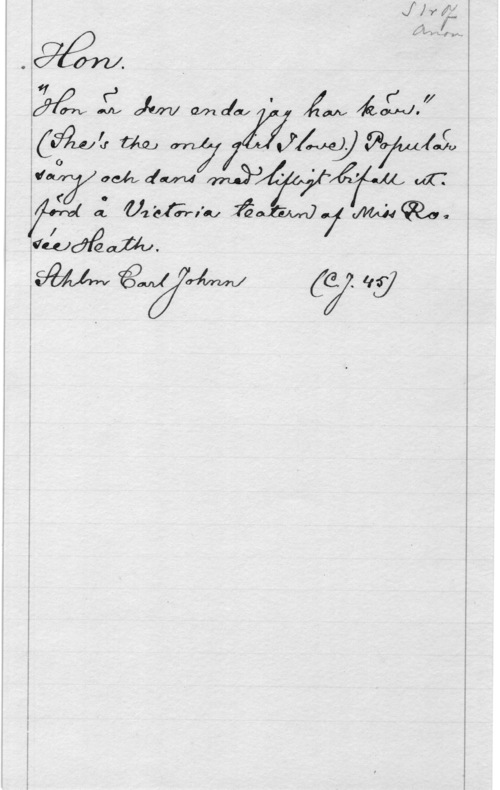 Strof
Anon
Hon.
"Hon är den enda jag har kär."
(She's the only girl I love.) Populär
sång och dans med lifligt bifall ut-
förd å Victoria teatern af Miss Ro-
sée Heath.
Ahlm Carl Johnn (C.J. 45)